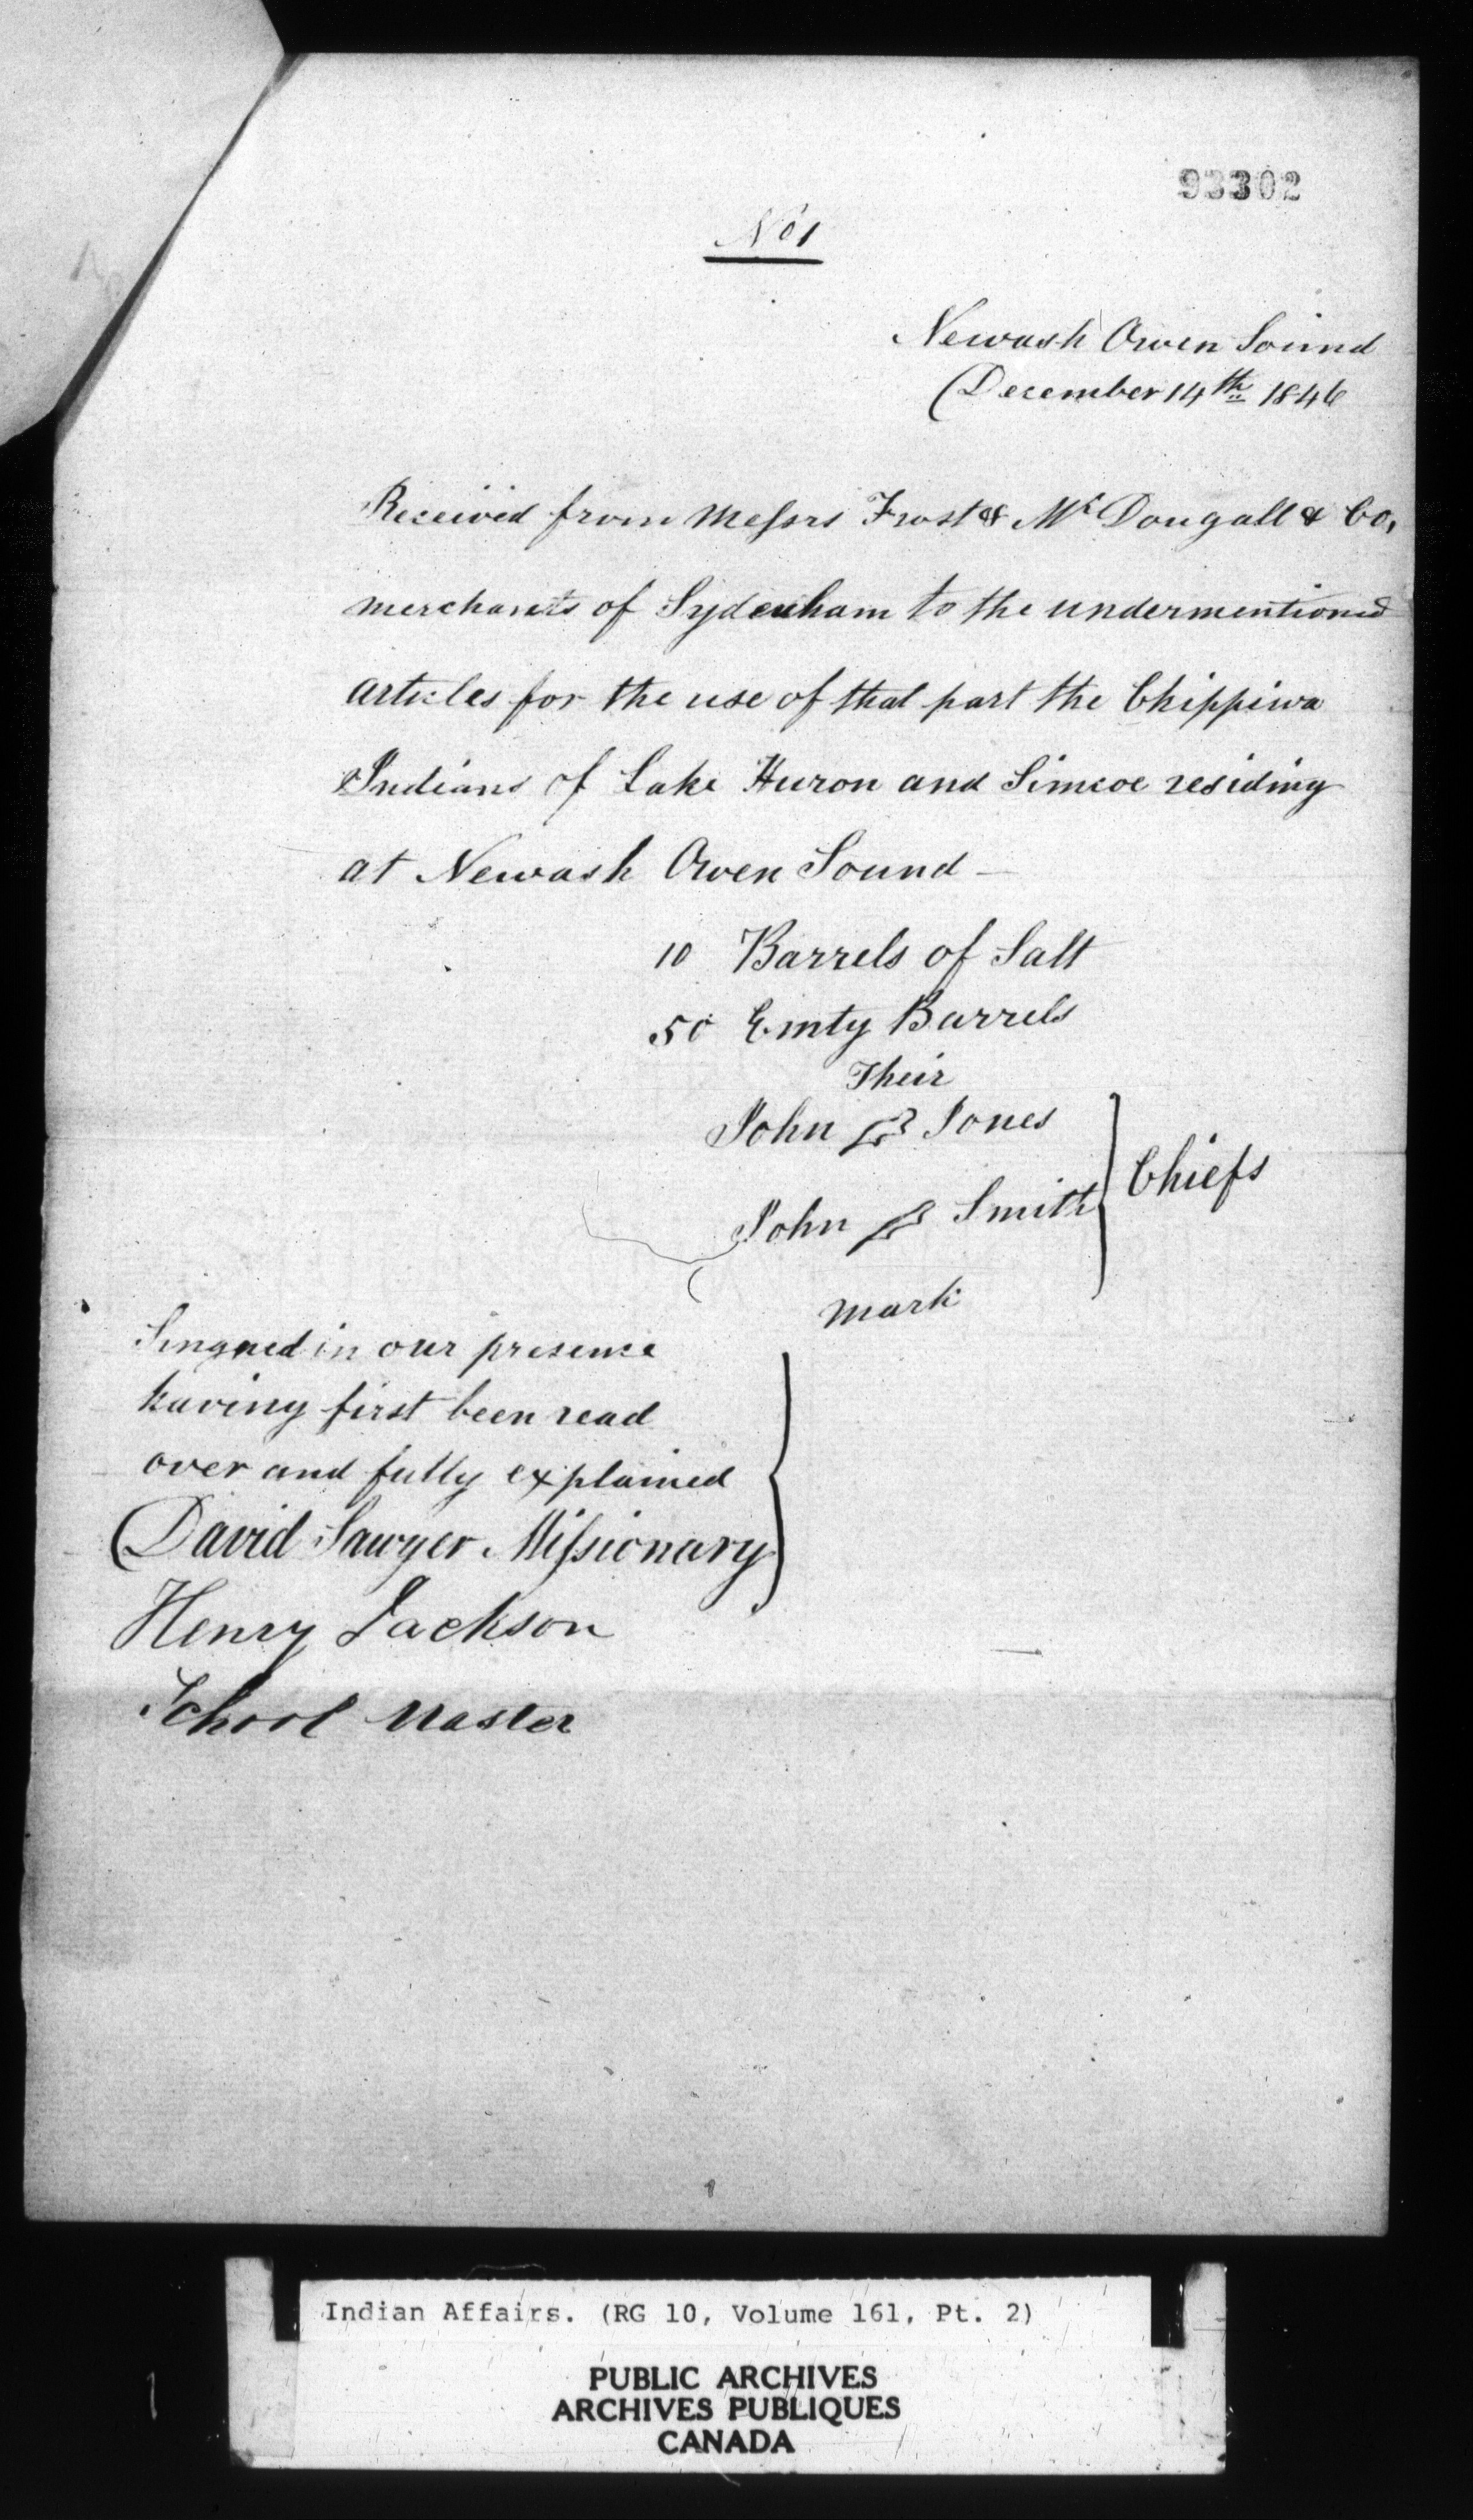 93302
No 1
Newash Owen Sound
December 14th 1846
Received from Messrs Frost & Mc Dougall & Co,
merchants of Sydenham to the undermentioned
articles for the use of that part the Chippiwa
Indians of Lake Huron and Simcoe residing
at Newash Owen Sound —
10 Barrels of Salt
50 Emty Barrels
Their
John Jones
John Smith
Chiefs
mark
Singned in our presence
having first been read
over and fully explained
David Sawyer Missionary
Henry Jackson
School Master
Indian Affairs. (RG 10, Volume 161, Pt. 2)
PUBLIC ARCHIVES
ARCHIVES PUBLIQUES
CANADA